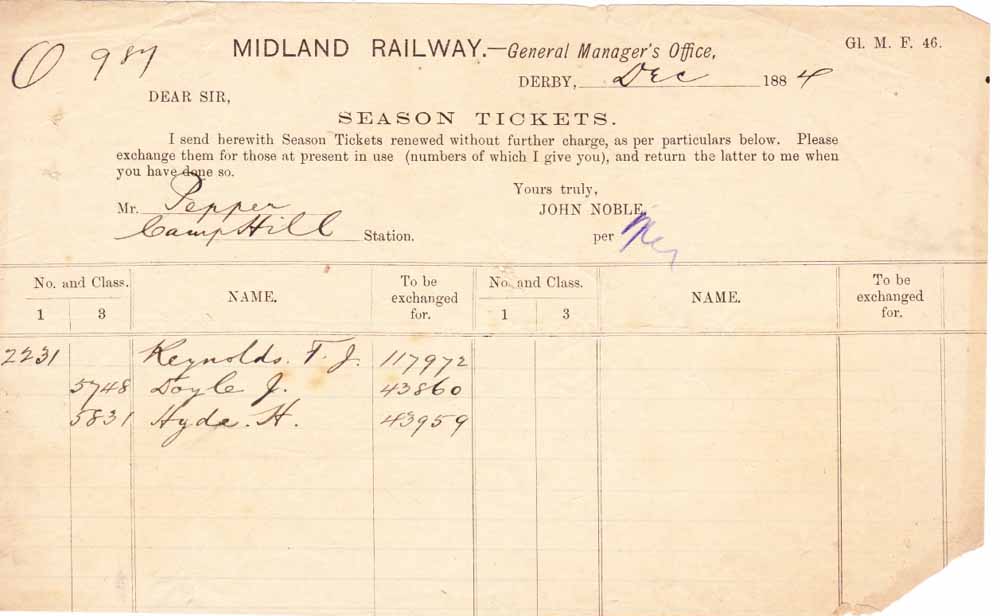 O 987
MIDLAND RAILWAY.—General Manager's Office,
Gl. M. F. 46.
DERBY, Dec 1884
DEAR SIR,
SEASON TICKETS.
I send herewith Season Tickets renewed without further charge, as per particulars below. Please
exchange them for those at present in use (numbers of which I give you), and return the latter to me when
you have done so.
Yours truly,
Mr. Pepper
JOHN NOBLE,
Camp Hill Station.
per
No. and Class. NAME. To be exchanged for. No. and Class. NAME. To be exchanged for.
1 3 1 3
2231 Reynolds. T. J. 117972
5748 Doyle J. 43860
5831 Hyde. H. 43959